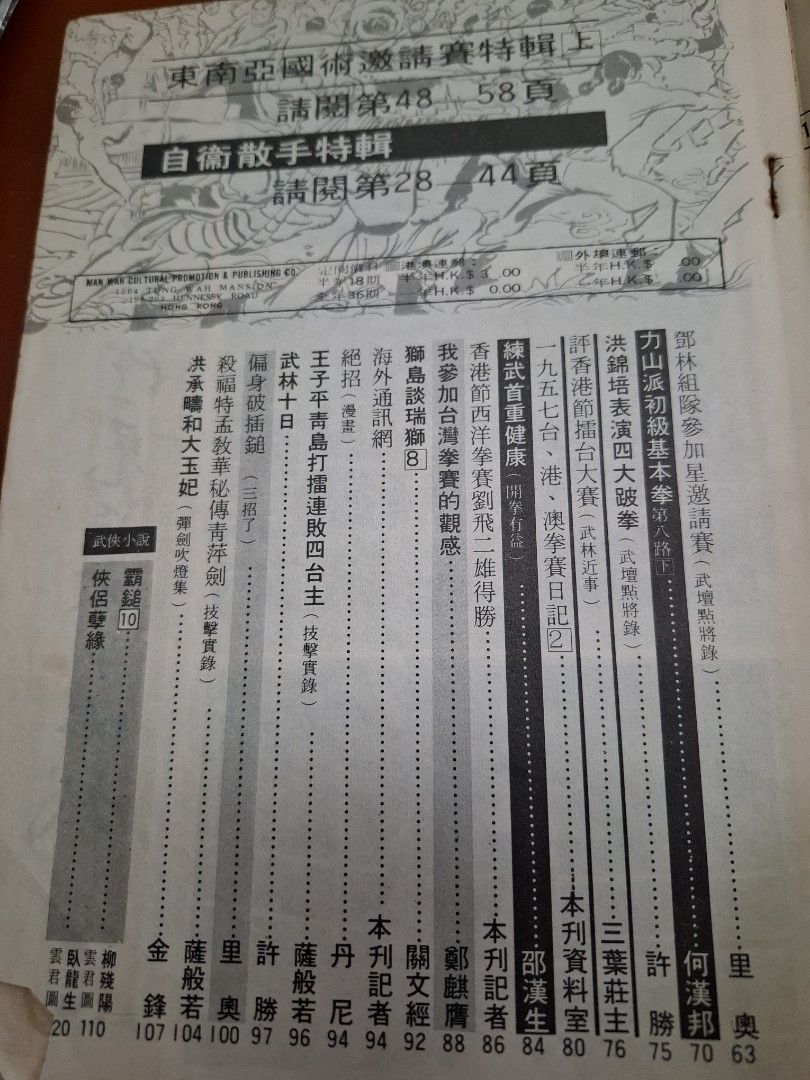 東南亞國術邀請賽特輯 上
請閱第48—58頁
自衞散手特輯
請閱第28—44頁
MAN WAH CULTURAL PROMOTION & PUBLISHING CO.
1504 TUNG WAH MANSION
HENNESSY ROAD
HONG KONG
半年18期
全年36期
港澳連郵：
半年H.K.$ 3 .00
H.K.$ 0.00
外埠連郵：
半年H.K.$ .00
H.K.$ .00
鄧林組隊參加星邀請賽（武壇點將錄）……里奧 63
力山派初級基本拳第八路下……何漢邦 70
洪錦培表演四大跛拳（武壇點將錄）……許勝 75
評香港節擂台大賽（武林近事）……三葉莊主 76
一九五七台、港、澳拳賽日記2……本刊資料室 80
練武首重健康（開拳有益）……邵漢生 84
香港節西洋拳賽劉飛二雄得勝……本刊記者 86
我參加台灣拳賽的觀感……鄭麒膺 88
獅島談瑞獅8……關文經 92
海外通訊網……本刊記者 94
絕招（漫畫）……丹尼 94
王子平靑島打擂連敗四台主（技擊實錄）……薩般若 96
武林十日……許勝 97
偏身破插鎚（三招了）……里奧 100
殺福特孟敎華秘傳靑萍劍（技擊實錄）……薩般若 104
洪承疇和大玉妃（彈劍吹燈集）……金鋒 107
武俠小說
霸鎚10……柳殘陽 雲君圖 110
俠侶孽緣……臥龍生 雲君圖 20